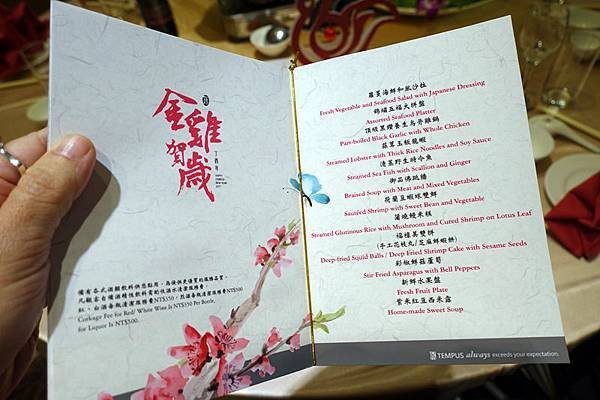 金雞
賀歲
Corkage Fee for Red/ White Wine Is NT$350 Per Bottle,
for Liquor Is NT$500.
蘿蔓海鮮和風沙拉
Fresh Vegetable and Seafood Salad with Japanese Dressing
錦繡五福大拼盤
Assorted Seafood Platter
頂級黑鑽養生烏骨雞鍋
Part-boiled Black Garlic with Whole Chicken
蒜茸玉板龍蝦
Steamed Lobster with Thick Rice Noodles and Soy Sauce
清蒸野生時令魚
Steamed Sea Fish with Scallion and Ginger
御品佛跳牆
Braised Soup with Meat and Mixed Vegetables
荷蘭豆蝦球雙鮮
Sautéed Shrimp with Sweet Bean and Vegetable
蒲燒鰻米糕
Steamed Glutinous Rice with Mushroom and Cured Shrimp on Lotus Leaf
福禧美雙拼
(手工花枝丸/芝麻鮮蝦餅)
Deep-fried Squid Balls / Deep Fried Shrimp Cake with Sesame Seeds
彩椒鮮菇蘆筍
Stir Fried Asparagus with Bell Peppers
新鮮水果盤
Fresh Fruit Plate
紫米紅豆西米露
Home-made Sweet Soup
TEMPUS always exceeds your expectation.